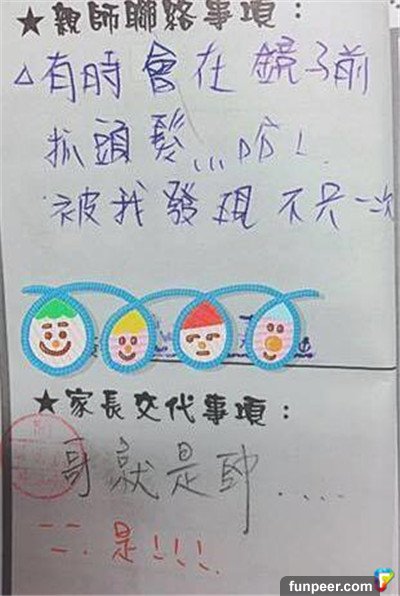 ★親師聯絡事項：
△有時會在鏡子前
抓頭髮...哈！
被我發現不只一次
★家長交代事項：
哥就是帥....
是!!!
funpeer.com